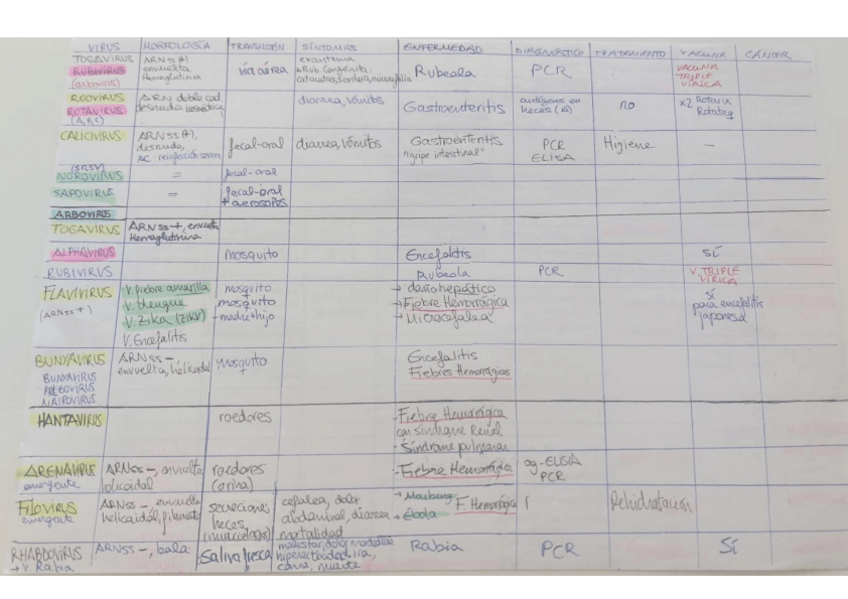 VIRUS MORFOLOGÍA TRANSMISIÓN SÍNTOMAS ENFERMEDAD DIAGNÓSTICO TRATAMIENTO VACUNA CÁNCER
TOGAVIRUS
RUBIVIRUS
(arbovirus)
ARNss (+)
envuelta
Hemaglutinina
vía aérea
exantema
Rub. Congénita:
cataratas, sordera, microcefalia
Rubeola
PCR
VACUNA
TRIPLE
VÍRICA
REOVIRUS
ROTAVIRUS
(A,B,C)
ARN doble cad
desnudo
diarrea, vómitos
Gastroenteritis
antígenos en
heces (A)
NO
x2 Rotarix
Rotateq
CALICIVIRUS
ARNss (+),
desnudo,
fecal-oral
diarrea, vómitos
Gastroenteritis
"gripe intestinal"
PCR
ELISA
Higiene
-
(SRSV)
NOROVIRUS
=
fecal-oral
SAPOVIRUS
=
fecal-oral
+ aerosoles
ARBOVIRUS
TOGAVIRUS
ARNss +, envuelta
Hemaglutinina
ALPHAVIRUS
mosquito
Encefalitis
SÍ
RUBIVIRUS
Rubeola
PCR
V. TRIPLE
VÍRICA
FLAVIVIRUS
(ARNss +)
V. fiebre amarilla
V. dengue
V. Zika (ZIKV)
V. Encefalitis
mosquito
+
mosquito
- madre→hijo
→ daño hepático
→ Fiebre Hemorrágica
→ Microcefalea
SÍ
para encefalitis
japonesa
BUNYAVIRUS
BUNYAVIRUS
NAIROVIRUS
ARNss -
envuelta, helicoidal
mosquito
+
Encefalitis
Fiebres Hemorrágicas
HANTAVIRUS
roedores
- Fiebre Hemorrágica
con Síndrome Renal
- Síndrome pulmonar
ARENAVIRUS
emergente
ARNss -, envuelta
helicoidal
roedores
(orina)
- Fiebre Hemorrágica
ag - ELISA
PCR
FILOVIRUS
emergente
ARNss -, envuelta
helicoidal,
secreciones
heces
(murciélagos)
cefalea, dolor
abdominal, diarrea
mortalidad
→ Marburg
→ Ébola
F. Hemorrágica
Rehidratación
RHABDOVIRUS
→ V. Rabia
ARNss -, bala
Saliva fresca
malestar, dolor
hiperactividad, ira,
coma, muerte
Rabia
PCR
SÍ